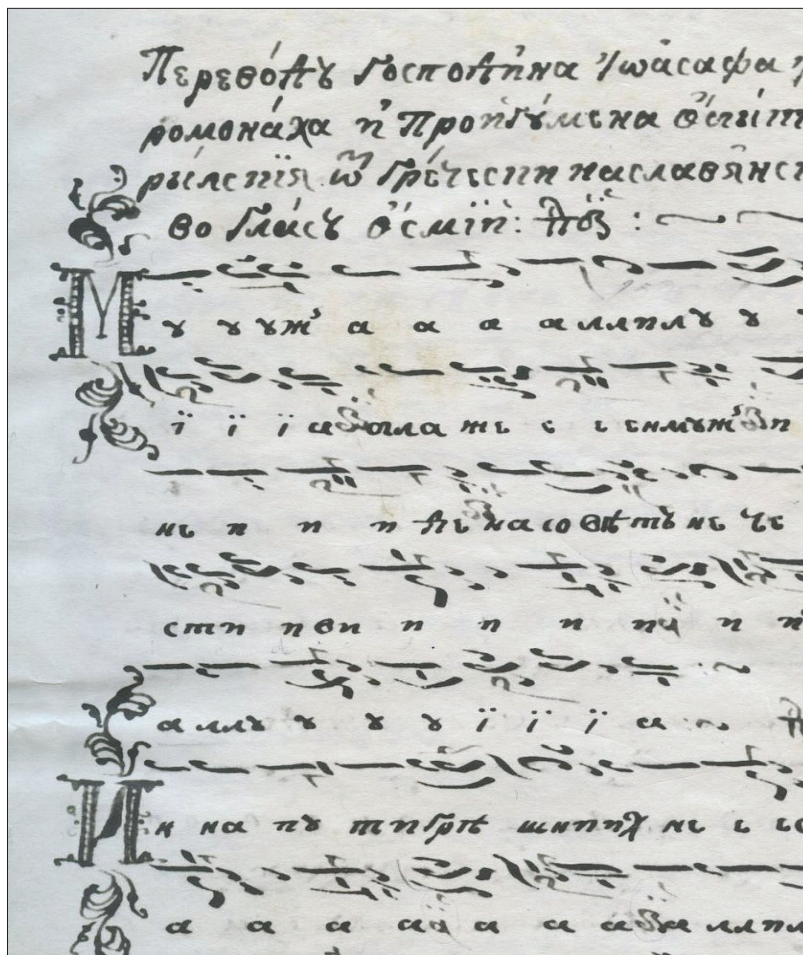 Перево́дъ Господи́на Іѡа́сафа
ромона́ха и҆ Прои҆гꙋ́мена
ры́лскїѧ ѿ Гре́чески наславѧ́нс
во гла́съ ѻ҆́смїй:
М ꙋ ꙋ ꙋж̾ а а а аллилꙋ ꙋ
ї ї ї а блаже е е енмꙋж̾ и
не и и и де на совѣтъ не че
сти иви и и и ии и и
аллꙋ ꙋ ꙋ ꙋ ї ї ї а
И н на пꙋ тигрѣ шниихъ не е е
а а а аа а а а аллил